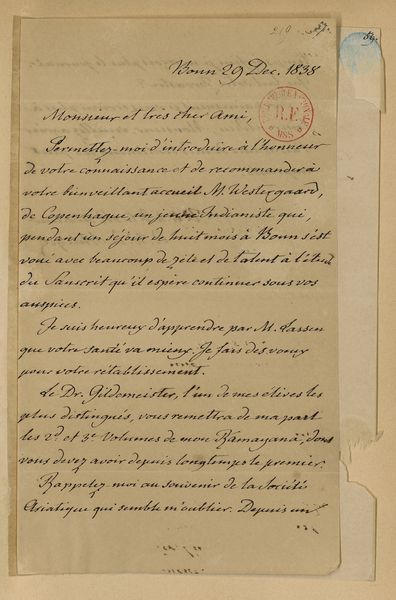 Bonn 29 Dec. 1838
Monsieur et très cher Ami,
Permettez-moi d'introduire à l'honneur
de votre connaissance et de recommander à
votre bienveillant accueil M. Westergaard,
de Copenhague, un jeune Indianiste qui,
pendant un séjour de huit mois à Bonn s'est
voué avec beaucoup de zèle et de talent à l'étude
du Sanscrit qu'il espère continuer sous vos
auspices.
Je suis heureux d'apprendre par M. Lassen
que votre santé va mieux. Je fais des voeux
pour votre rétablissement.
Le Dr. Gildemeister, l'un de mes élèves les
plus distingués, vous remettra de ma part
les 2d et 3e Volumes de mon Râmayana, dont
vous devez avoir depuis longtemps le premier.
Rappelez-moi au souvenir de la Société
Asiatique qui semble m'oublier. Depuis un
R.F.
MSS